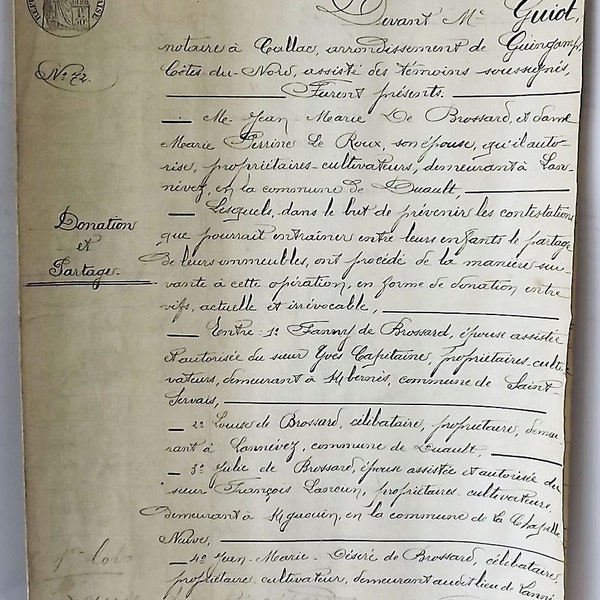 Devant Me Guiot,
notaire à Callac, arrondissement de Guingamp,
Côtes-du-Nord, assisté des témoins soussignés,
Furent présents.
No 72.
Mr Jean Marie De Brossard, et dame
Marie Perrine Le Roux, son épouse, qu'il auto-
rise, propriétaires-cultivateurs, demeurant à Lan-
névez, en la commune de Duault,
Donation
et
Partage.
Lesquels, dans le but de prévenir les contestations
que pourrait entraîner entre leurs enfants le partage
de leurs immeubles, ont procédé de la manière sui-
vante à cette opération, en forme de donation entre
vifs, actuelle et irrévocable,
Entre: 1o Fanny de Brossard, épouse assistée
et autorisée du sieur Yves Capitaine, propriétaires-culti-
vateurs, demeurant à Kbernès, commune de Saint-
Servais,
2o Louise de Brossard, célibataire, propriétaire, demeu-
rant à Lannévez, commune de Duault.
3o Julie de Brossard, épouse assistée et autorisée du
sieur François Lancien, propriétaires-cultivateurs,
demeurant à Kguouin, en la commune de la Chapelle
Neuve,
4o Jean-Marie-Désiré de Brossard, célibataire,
propriétaire, cultivateur, demeurant audit lieu de Lanné-